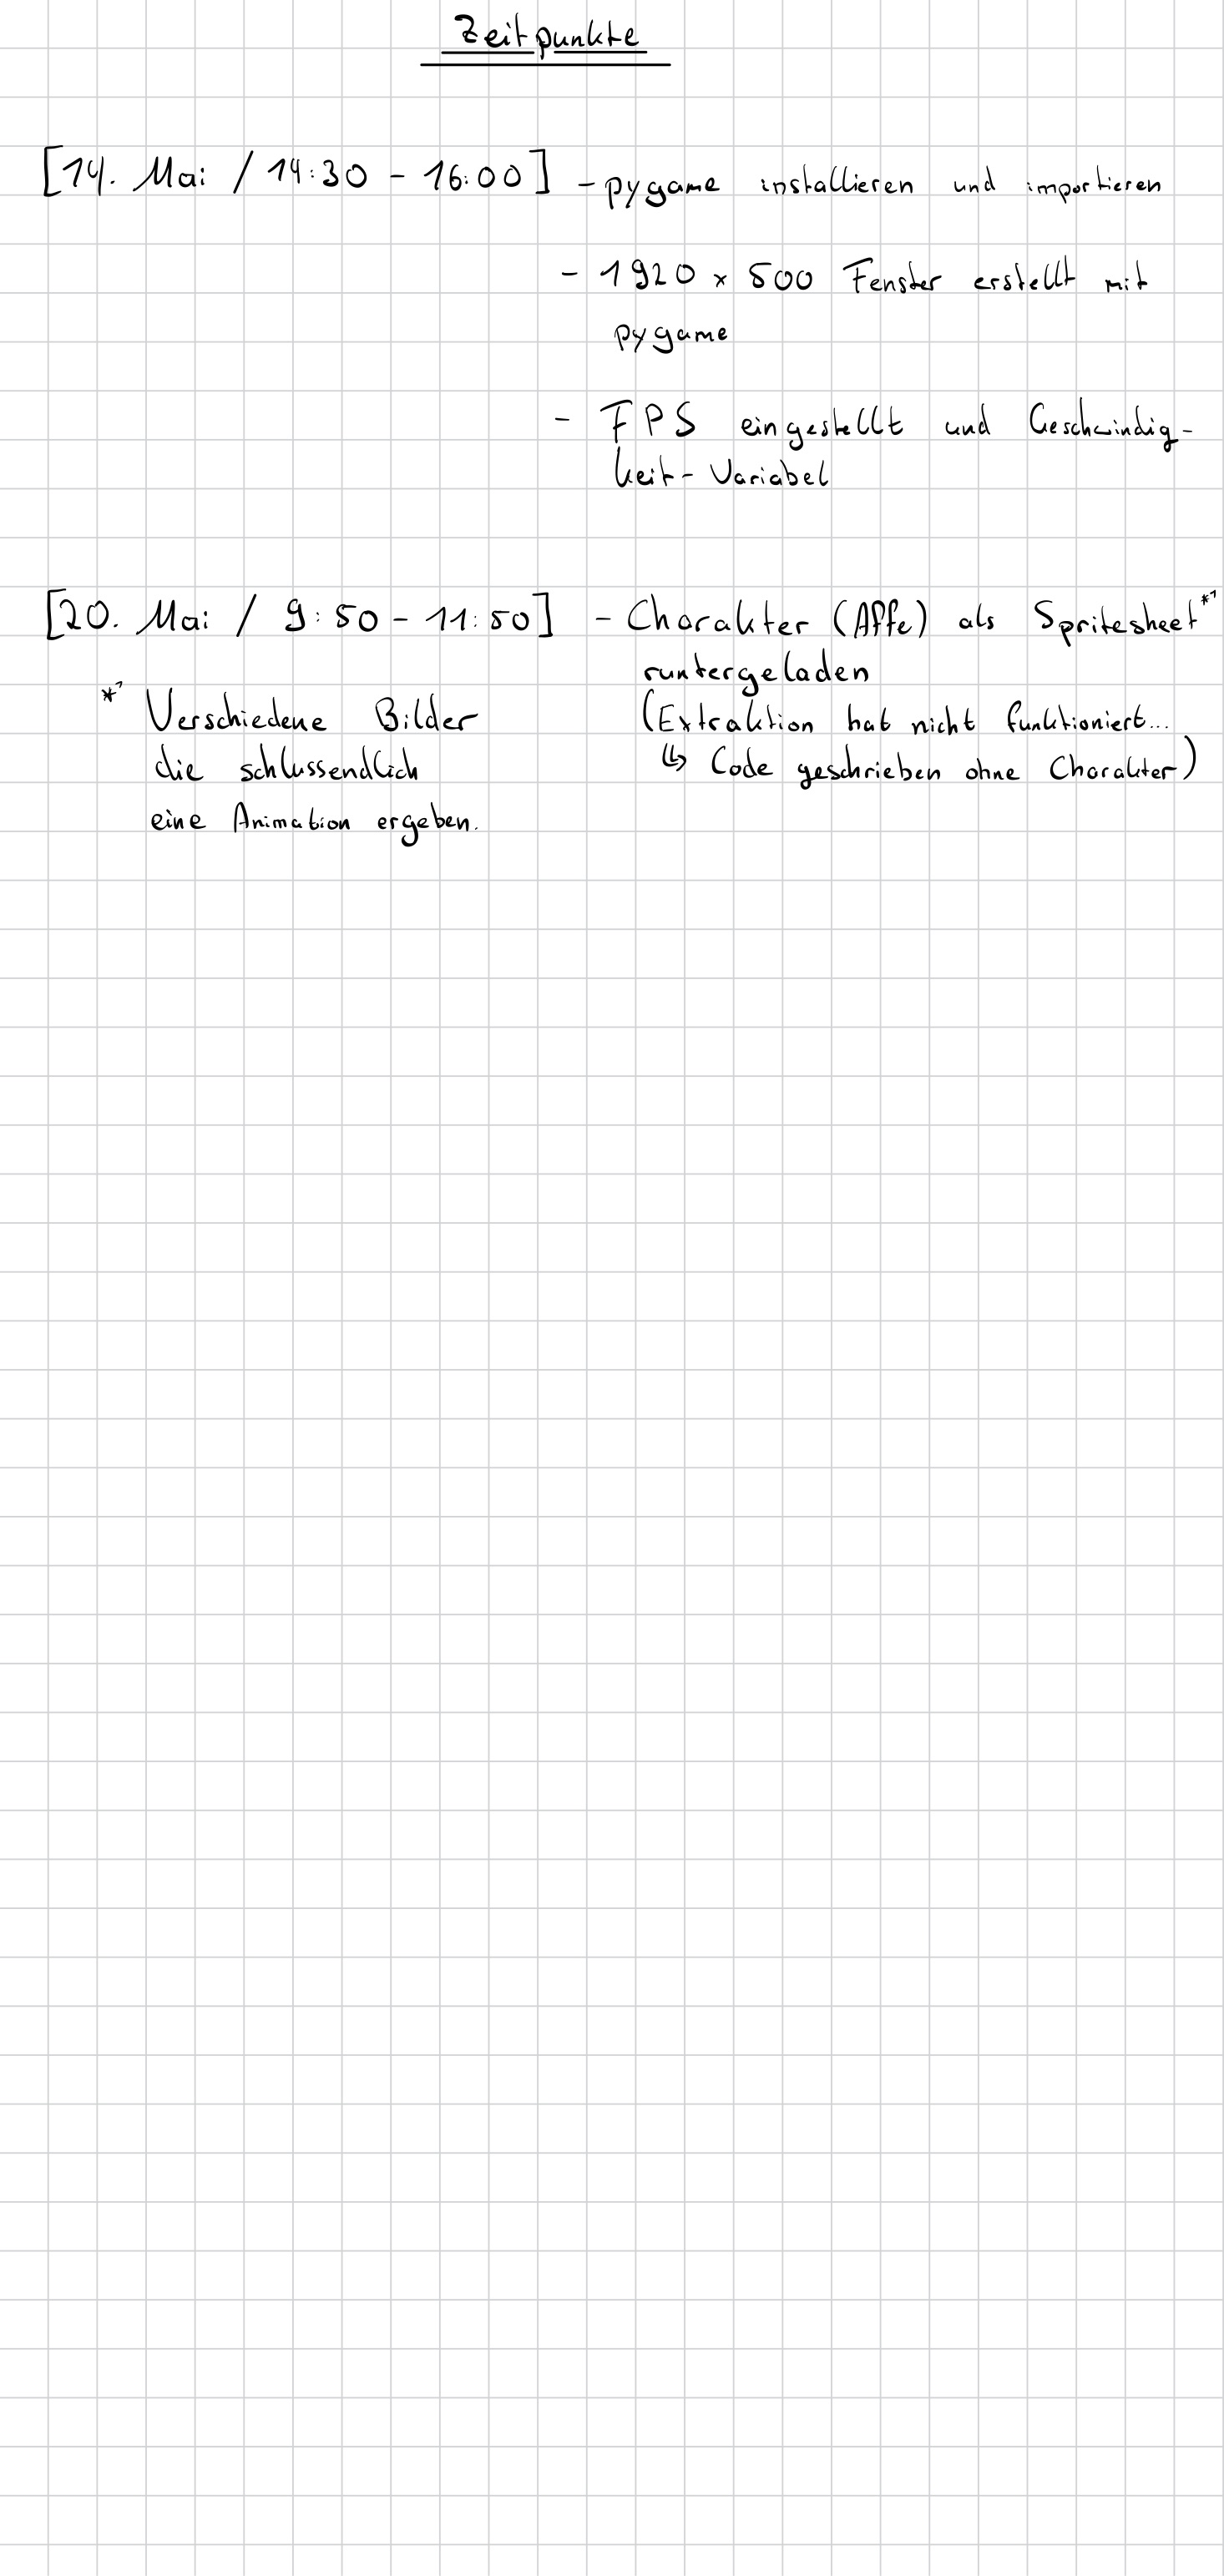 Zeitpunkte
[14. Mai / 14:30 - 16:00] - pygame installieren und importieren
- 1920 x 500 Fenster erstellt mit
pygame
- FPS eingestellt und Geschwindig-
keit-Variabel
[20. Mai / 9:50 - 11:50] - Charakter (Affe) als Spritesheet*1
runtergeladen
(Extraktion hat nicht funktioniert...
↳ Code geschrieben ohne Charakter)
*1 Verschiedene Bilder
die schlussendlich
eine Animation ergeben.